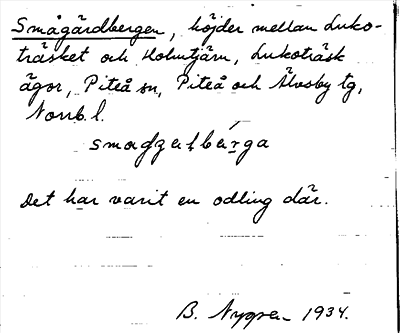 Smågärdbergen, höjder mellan Luko-
träsket och Holmtjärn, Lukoträsk
ägor, Piteå sn, Piteå och Älvsby tg,
Norrb. l.
Det har varit en odling där.
B. Nygren 1934.